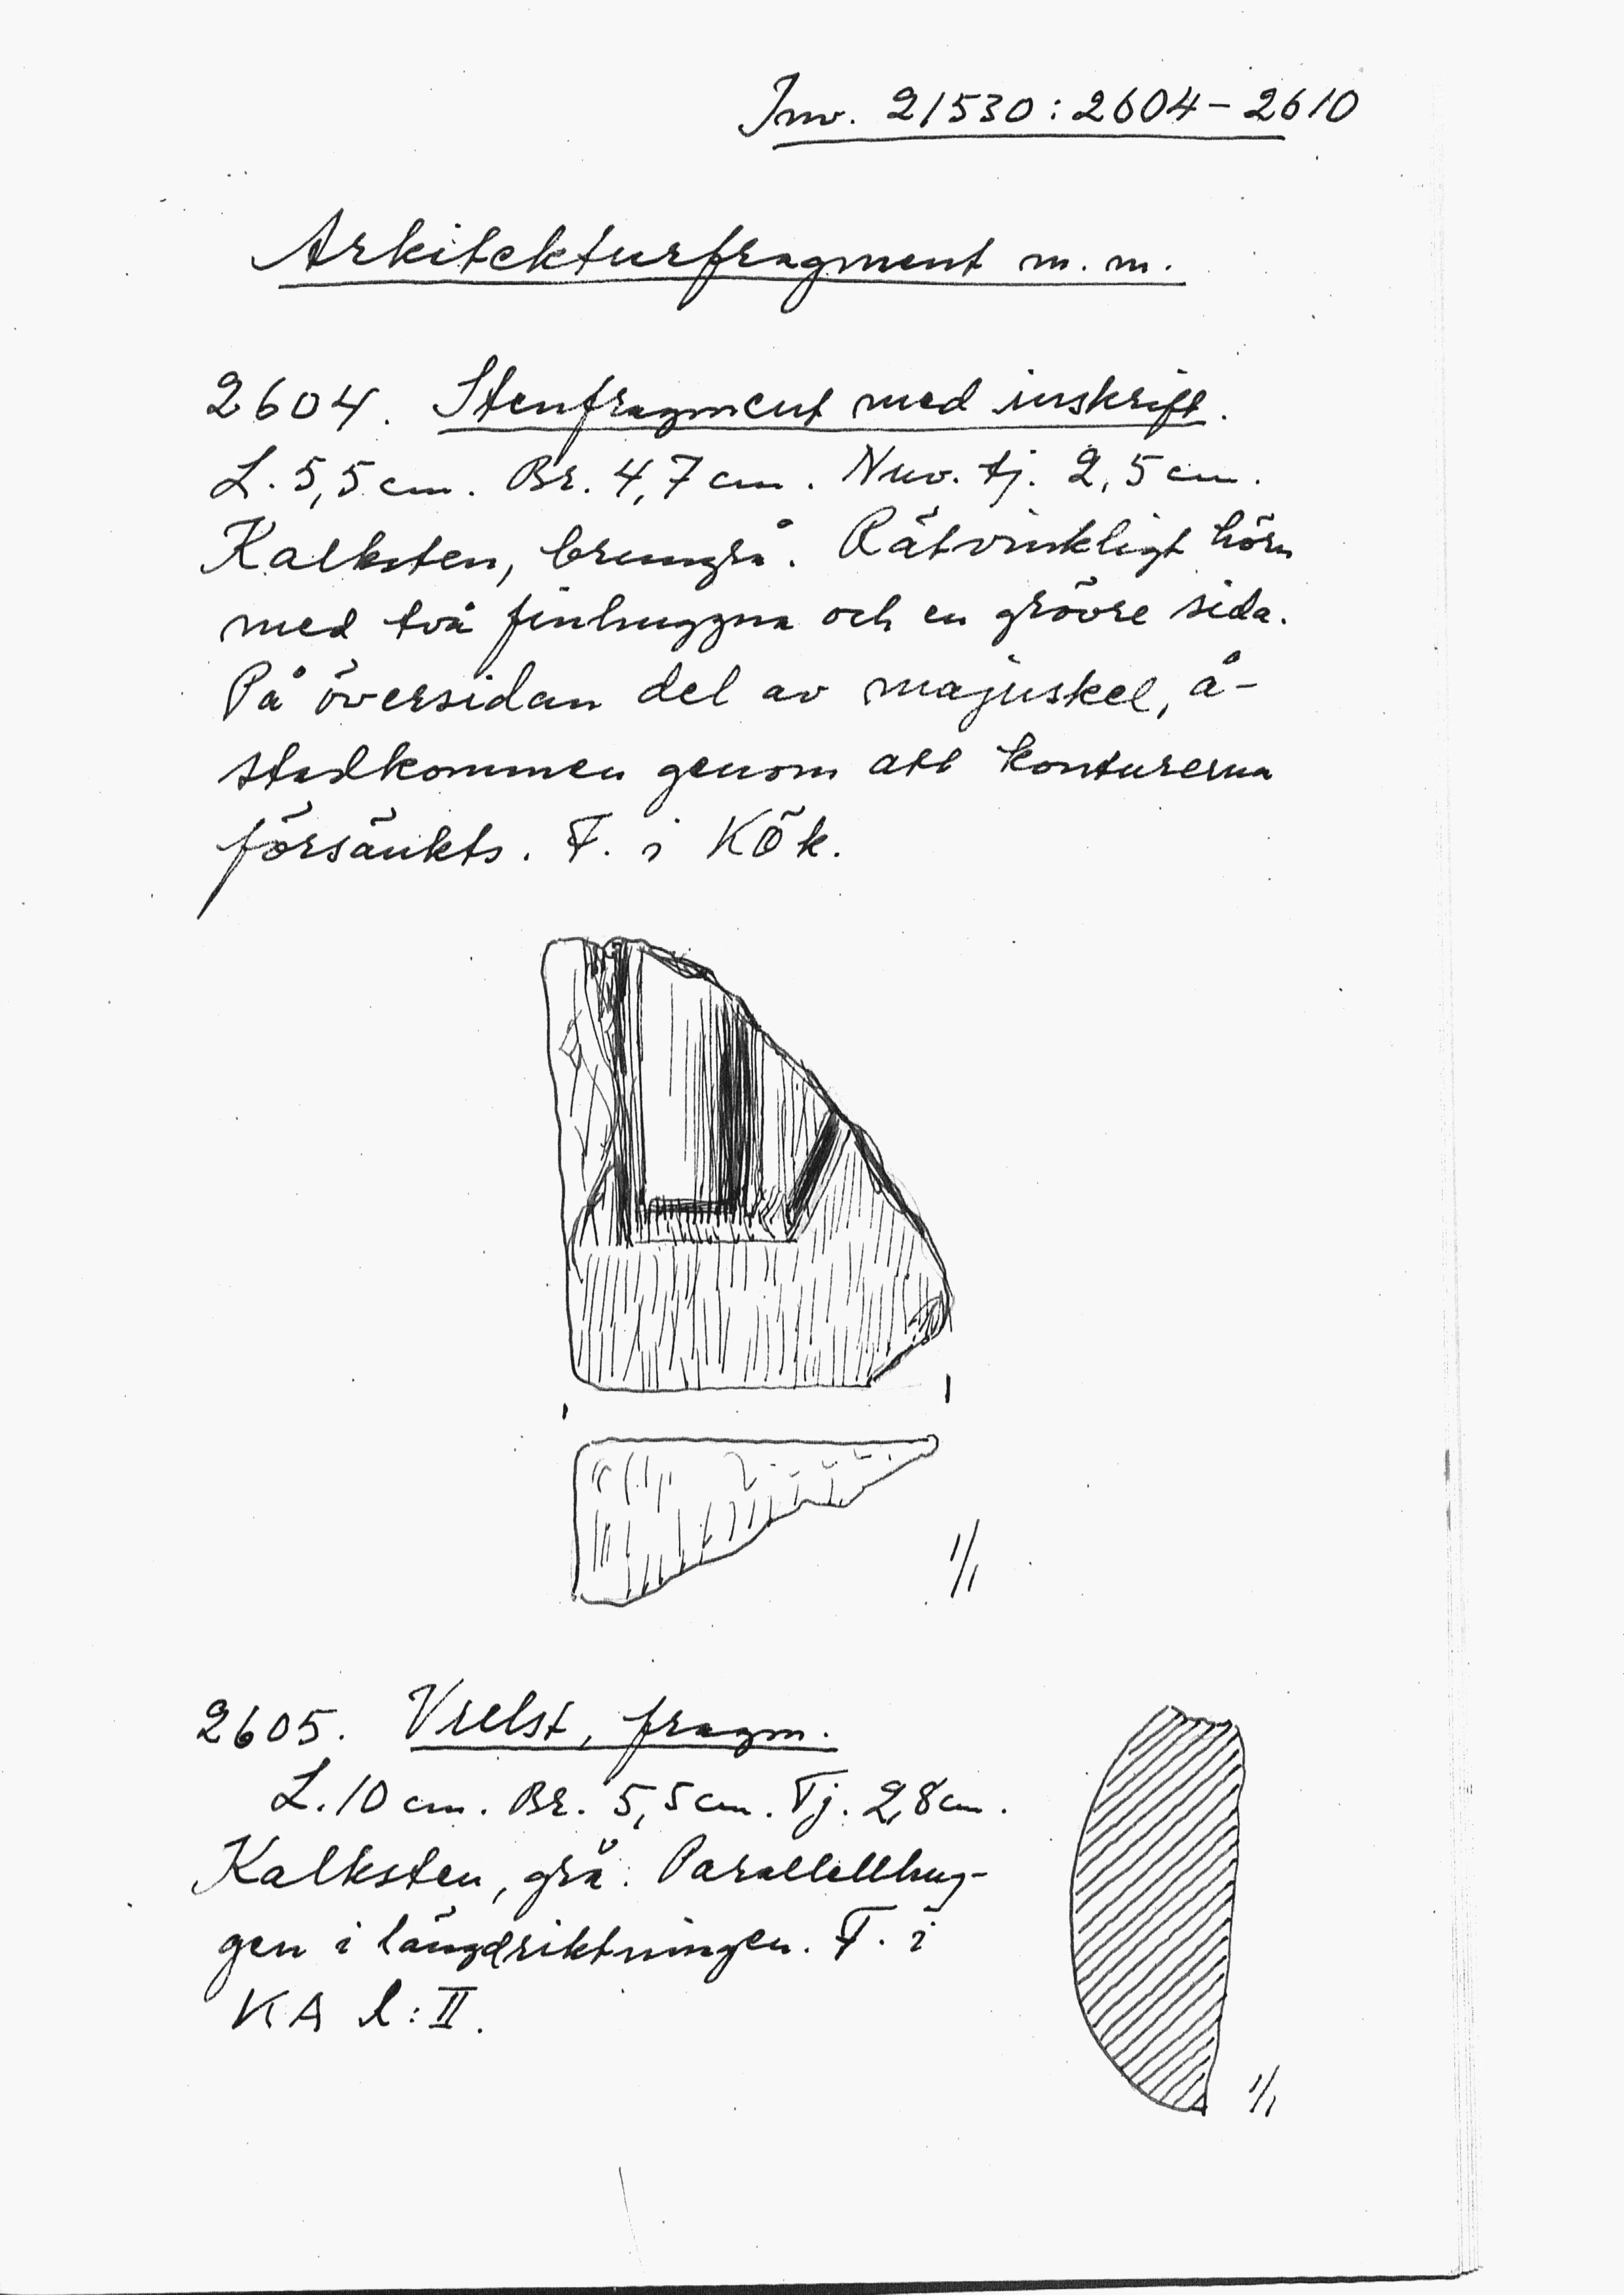 Inv. 21530:2604-2610
Arkitekturfragment m.m.
2604. Stenfragment med inskrift.
L. 5,5 cm. Br. 4,7 cm. Nuv. tj. 2,5 cm.
Kalksten, brungrå. Rätvinkligt hörn
med två finhuggna och en grövre sida.
På översidan del av majuskel, å-
stadkommen genom att konturerna
försänkts. F. i KÖk.
1/1
2605. Vrelst, fragm.
L. 10 cm. Br. 5,5 cm. Tj. 2,8 cm.
Kalksten, grå. Parallellhug-
gen i längdriktningen. F. i
KA l:II.
1/1